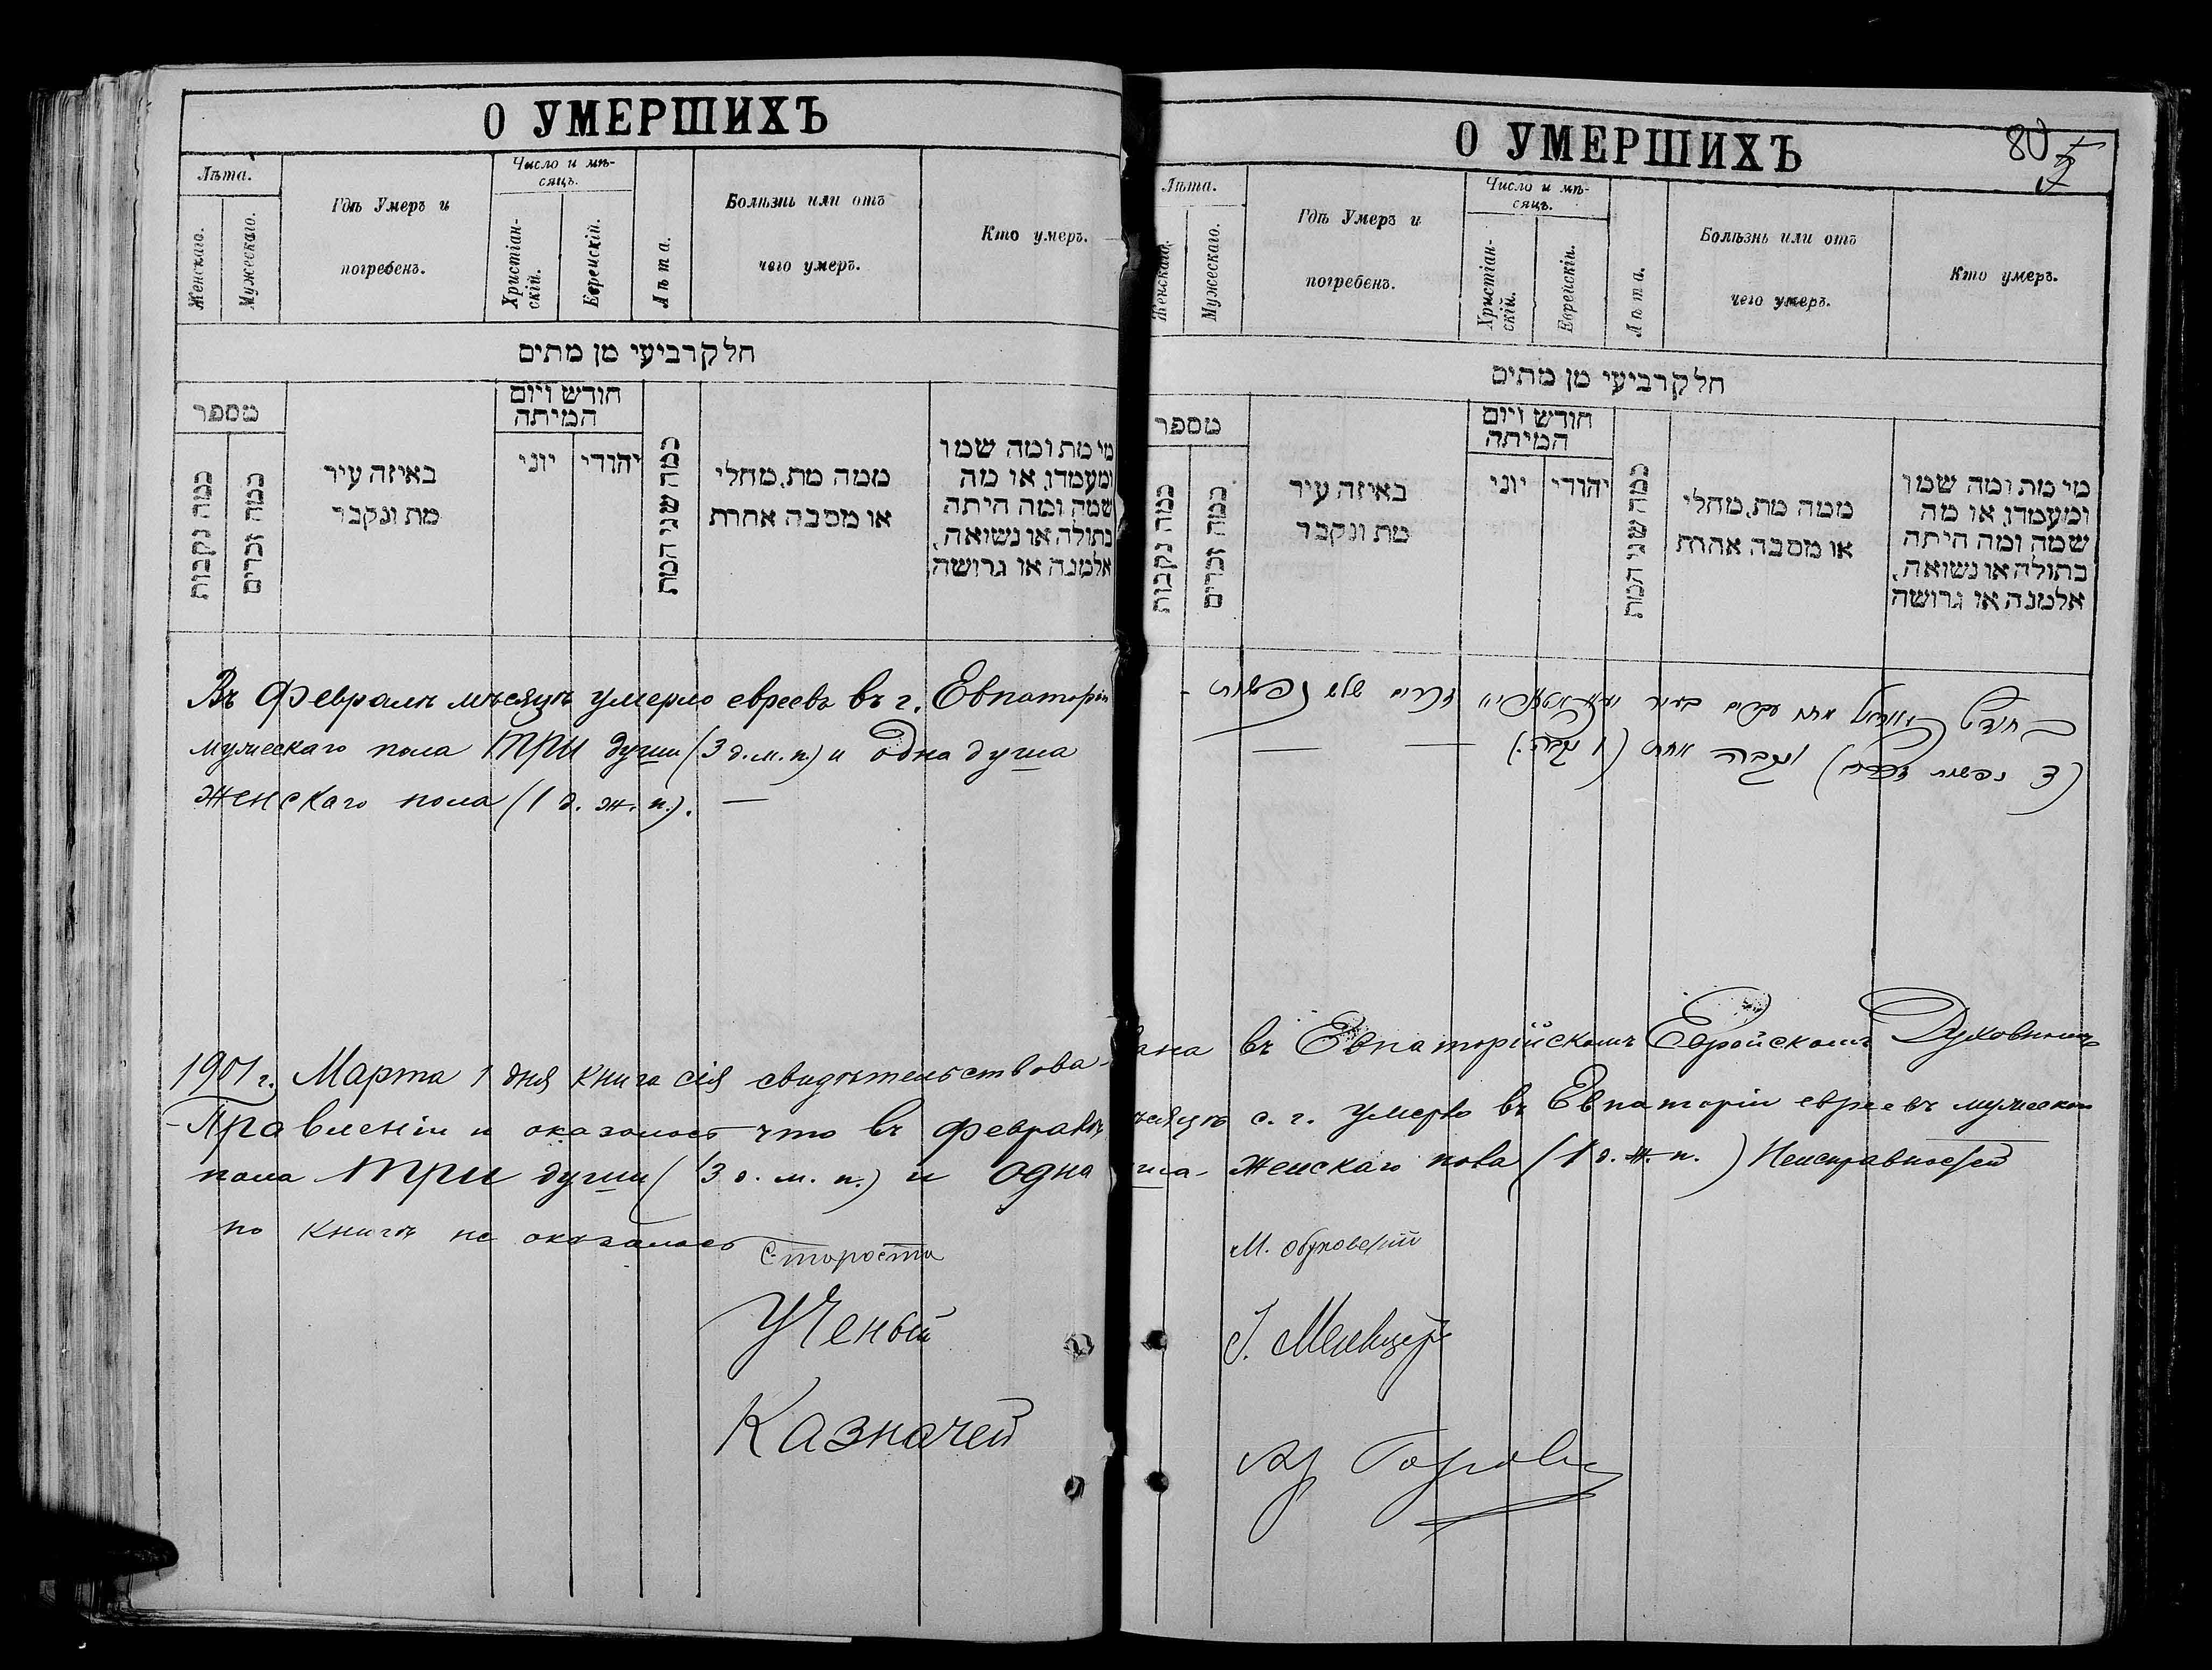 О УМЕРШИХЪ
Лѣта.
Женскаго.
Мужескаго.
Гдѣ Умеръ и
погребенъ.
Число и мѣ-
сяцъ.
Христіан-
скій.
Еврейскій.
Лѣта.
Болѣзнь или отъ
чего умеръ.
Кто умеръ.
חלק רביעי מן מתים
מספר
כמה נקבות
כמה זכרים
באיזה עיר
מת ונקבר
חודש ויום
המיתה
יוני
יהודי
כמה שני המת
ממה מת, מחלי
או מסבה אחרת
מי מת ומה שמו
ומעמדו, או מה
שמה ומה היתה
בתולה או נשואה,
אלמנה או גרושה
Въ Февралѣ мѣсяцѣ умерло евреевъ въ г. Евпаторіи
мужескаго пола три души (3 д. м. п.) и одна душа
женскаго пола (1 д. ж. п.). —
О УМЕРШИХЪ
80
Лѣта.
Женскаго.
Мужескаго.
Гдѣ Умеръ и
погребенъ.
Число и мѣ-
сяцъ.
Христіан-
скій.
Еврейскій.
Лѣта.
Болѣзнь или отъ
чего умеръ.
Кто умеръ.
חלק רביעי מן מתים
מספר
כמה נקבות
כמה זכרים
באיזה עיר
מת ונקבר
חודש ויום
המיתה
יוני
יהודי
כמה שני המת
ממה מת, מחלי
או מסבה אחרת
מי מת ומה שמו
ומעמדו, או מה
שמה ומה היתה
בתולה או נשואה,
אלמנה או גרושה
זכרים שלש נפשות
נפשות זכרים) ונקבה אחת (1 נקבה)
1901 г. Марта 1 дня книга сія свидѣтельствова-ана въ Евпаторійскомъ Еврейскомъ Духовномъ
Правленіи и оказалось что въ Февралѣ мѣсяцѣ с. г. умерло въ Евпаторіи евреевъ мужескаго
пола три души (3 д. м. п.) и одна душа женскаго пола (1 д. ж. п.) Неисправностей
по книгѣ не оказалось
Староста М. Обуховскій
Ученый
Казначей